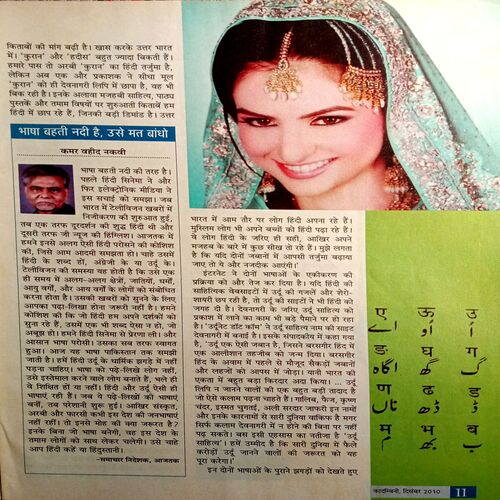 किताबों की मांग बढ़ी है। खास करके उत्तर भारत
में। 'कुरान' और 'हदीस' बहुत ज्यादा बिकती हैं।
हमारे पास तो अरबी 'कुरान' का हिंदी तर्जुमा है,
लेकिन अब एक और प्रकाशक ने सीधा मूल
'कुरान' को ही देवनागरी लिपि में छापा है, वह भी
बिक रही है। इनके अलावा मजहबी साहित्य, पाठ्य
पुस्तकें और तमाम विषयों पर शुरुआती किताबें हम
हिंदी में छाप रहे हैं, जिनकी बड़ी डिमांड है। उत्तर
भाषा बहती नदी है, उसे मत बांधो
कमर वहीद नकवी
भाषा बहती नदी की तरह है।
पहले हिंदी सिनेमा ने और
फिर इलेक्ट्रोनिक मीडिया ने
इस सचाई को समझा। जब
भारत में टेलीविजन खबरों में
निजीकरण की शुरुआत हुई,
तब एक तरफ दूरदर्शन की शुद्ध हिंदी थी और
दूसरी तरफ जी न्यूज की हिंग्लिश। आजतक में
हमने इनसे अलग ऐसी हिंदी परोसने की कोशिश
की, जिसे आम आदमी समझता हो। चाहे उसमें
हिंदी के शब्द हों, अंग्रेजी के या उर्दू के।
टेलीविजन की समस्या यह होती है कि उसे एक
ही समय में अलग-अलग क्षेत्रों, जातियों, धर्मों,
आयु वर्गों, और आय वर्गों के लोगों को संबोधित
करना होता है। उसकी खबरों को सुनने के लिए
आपका पढ़ा-लिखा होना जरूरी नहीं है। हमने
कोशिश की कि जो हिंदी हम अपने दर्शकों को
सुना रहे हैं, उसमें एक भी शब्द ऐसा न हो, जो
अबूझ हो। हमने हिंदी सिनेमा से प्रेरणा ली। और
आसान भाषा परोसी। उसका सब तरफ स्वागत
हुआ। आज वह भाषा पाकिस्तान तक समझी
जाती है। हमें हिंदी उर्दू के धार्मिक झगड़े में नहीं
पड़ना चाहिए। भाषा को पढ़े-लिखे लोग नहीं,
उसे इस्तेमाल करने वाले लोग बनाते हैं, भले ही
वे शिक्षित हों या नहीं। हिंदी और उर्दू ऐसी ही
भाषाएं रही हैं। जब वे पढ़े-लिखों की भाषाएं
बनीं, तब परेशानी शुरू हुई। आखिर संस्कृत,
अरबी और फारसी कभी इस देश की जनभाषाएं
नहीं रहीं। तो इनसे मोह की क्या जरूरत है?
इनके बिना जो भाषा बनेगी, वह इस देश के
तमाम लोगों को साथ लेकर चलेगी। उसे चाहे
आप हिंदी कहें या हिंदुस्तानी।
-समाचार निदेशक, आजतक
भारत में आम तौर पर लोग हिंदी अपना रहे हैं।
मुस्लिम लोग भी अपने बच्चों को हिंदी पढ़ा रहे हैं।
वे लोग हिंदी के जरिए ही सही, आखिर अपने
मजहब के बारे में कुछ सीख तो रहे हैं। मुझे लगता
है कि यदि दोनों जबानों में आपसी तर्जुमा बढ़ाया
जाए तो ये और नजदीक आएंगी।'
इंटरनेट ने दोनों भाषाओं के एकीकरण की
प्रक्रिया को और तेज कर दिया है। यदि हिंदी की
साहित्यिक वेबसाइटों में उर्दू की गजलें और शेरो-
शायरी छप रही है, तो उर्दू की साइटों ने भी हिंदी को
जगह दी है। देवनागरी के जरिए उर्दू साहित्य को
प्रकाश में लाने का काम भी बड़े पैमाने पर हो रहा
है। 'उर्दूनेट डॉट कॉम' ने उर्दू साहित्य नाम की साइट
देवनागरी में बनाई है। इसके संपादकीय में कहा गया
है, 'उर्दू एक ऐसी जबान है, जिसने बरसगीर हिंद में
एक आलीशान तहजीब को जन्म दिया। बरसगीर
हिंद के अवाम में पहले से मौजूद सैकड़ों जबानों
और लहजों को आपस में जोड़ा। यानी भारत को
एकता में बहुत बड़ा किरदार अदा किया।... उर्दू
लिपि न जानने वालों की एक बहुत बड़ी तादाद है
जो ऐसे कलाम पढ़ना चाहते हैं। गालिब, फैज, कृष्ण
चंदर, इस्मत चुगताई, अली सरदार जाफरी इन नामों
और इनके कारनामों से सारी दुनिया वाकिफ है मगर
सिर्फ कलाम देवनागरी में न होने की बिना पर नहीं
पढ़ सकते। बस इसी एहसास का नतीजा है 'उर्दू
साहित्य'। हमें उम्मीद है कि सारी दुनिया में फैले
करोड़ों उर्दू जानने वालों की जरूरत को यह
पूरा करेगा।'
इन दोनों भाषाओं के पुराने झगड़ों को देखते हुए
ए ऊ उ
اے اُو اُ
ङ घ ग
گھ گ
ण ढ ड
ڈھ ڈ
म भ ब
م بھ ب
कादम्बिनी, दिसंबर 2010 11